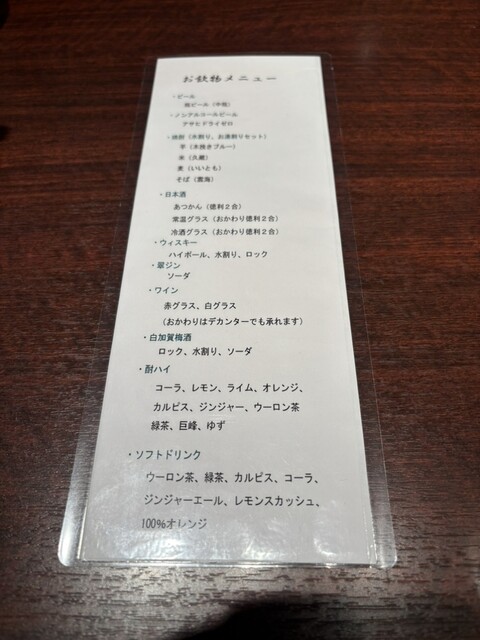 お飲物メニュー
・ビール
瓶ビール（中瓶）
・ノンアルコールビール
アサヒドライゼロ
・焼酎（水割り、お湯割りセット）
芋（木挽きブルー）
米（久蔵）
麦（いいとも）
そば（雲海）
・日本酒
あつかん（徳利２合）
常温グラス（おかわり徳利２合）
冷酒グラス（おかわり徳利２合）
・ウィスキー
ハイボール、水割り、ロック
・翠ジン
ソーダ
・ワイン
赤グラス、白グラス
（おかわりはデカンターでも承れます）
・白加賀梅酒
ロック、水割り、ソーダ
・酎ハイ
コーラ、レモン、ライム、オレンジ、
カルピス、ジンジャー、ウーロン茶
緑茶、巨峰、ゆず
・ソフトドリンク
ウーロン茶、緑茶、カルピス、コーラ、
ジンジャーエール、レモンスカッシュ、
100%オレンジ